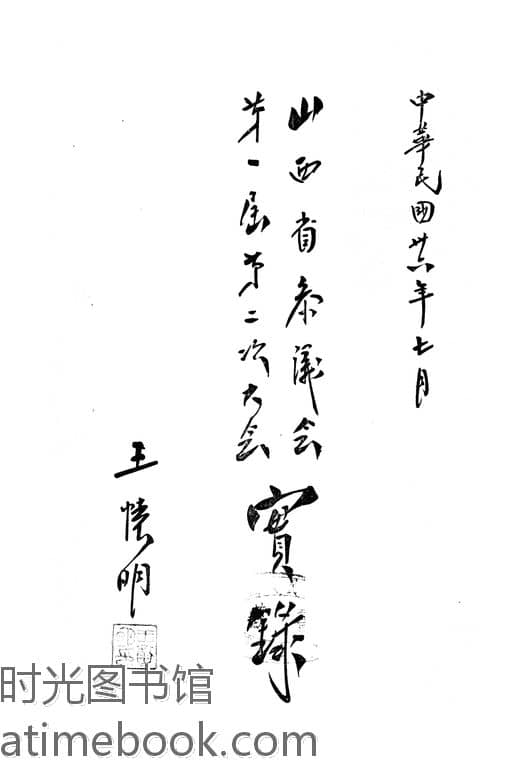 中華民國卅六年七月
山西省参議会
第一届第二次大会
實錄
王懷明
时光图书馆
atimebook.com